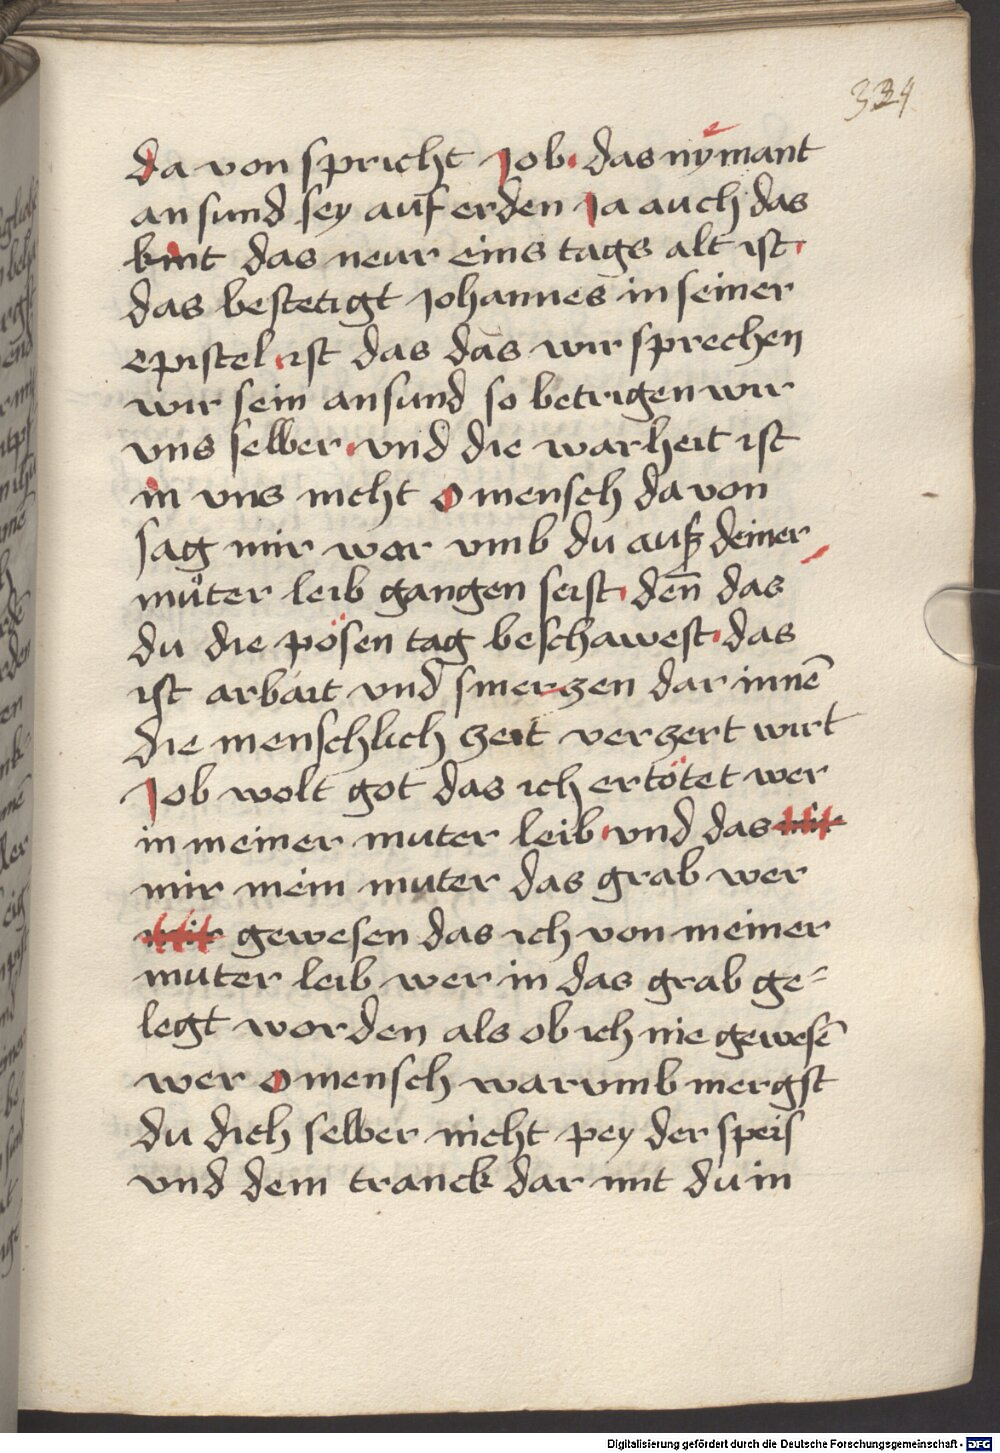 334
da von spricht Job· das nymant
an sund sey auf erden Ja auch das
kint das neur eins tags alt ist·
das bestetigt Johannes in seiner
epistel· ist das das wir sprechen
wir sein an sund so betrigen wir
vns selber· vnd die warheit ist
in vns nicht O mensch da von
sag mir war vmb du auß deiner
muͦter leib gangen seist· den̅ das
du die pösen tag beschawest· das
ist arbait vnd smerzen dar inne̅
die menschlich zeit verzert wirt
Job wolt got das ich ertötet wer
in meiner muter leib· vnd das
mir mein muter das grab wer
gewesen das ich von meiner
muter leib wer in das grab ge-
legt worden als ob ich nie gewese̅
wer O mensch warumb mergst
du dich selber nicht pey der speis
vnd dem tranck dar mit du in
Digitalisierung gefördert durch die Deutsche Forschungsgemeinschaft - DFG